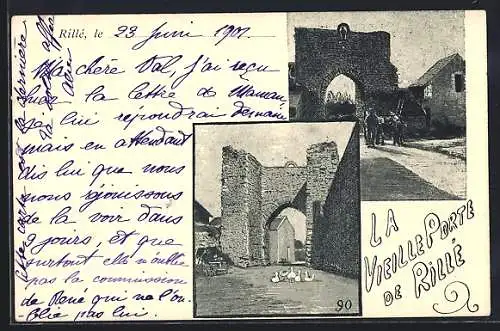 Rillé, le 23 Juin 1901.
Ma chère Val, j'ai reçu
hier la lettre de Maman,
je lui repondrai demain
mais en attendant
dis lui que nous
nous rejouissons
de la voir dans
9 jours, et que
surtout elle n'oublie
pas la commission
de René qui ne l'ou-
blie pas lui.
Cette carte est la dernière
de
LA
VIEILLE PORTE
DE RILLÉ
90